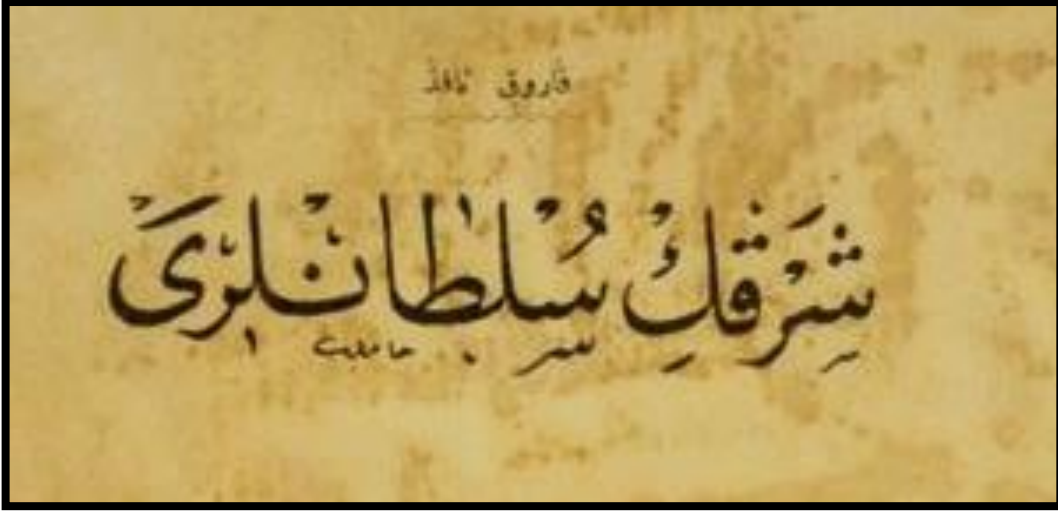 فاروق نافذ
شرقك سلطانلرى